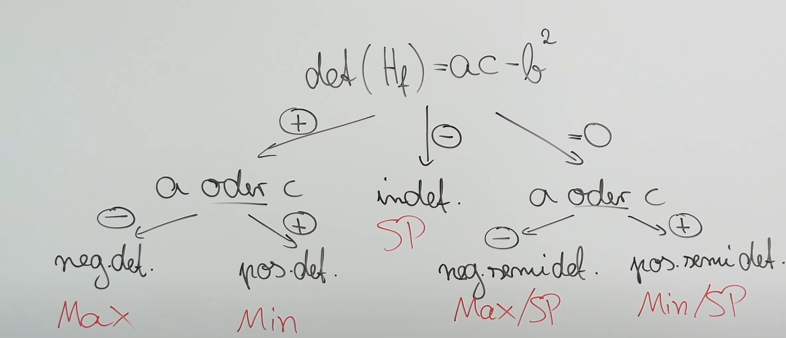 det(Hf)=ac-b²
⊕ ⊖ =0
a oder c indef. a oder c
⊖ ⊕ SP ⊖ ⊕
neg.def. pos.def. neg.semidef. pos.semidef.
Max Min Max/SP Min/SP